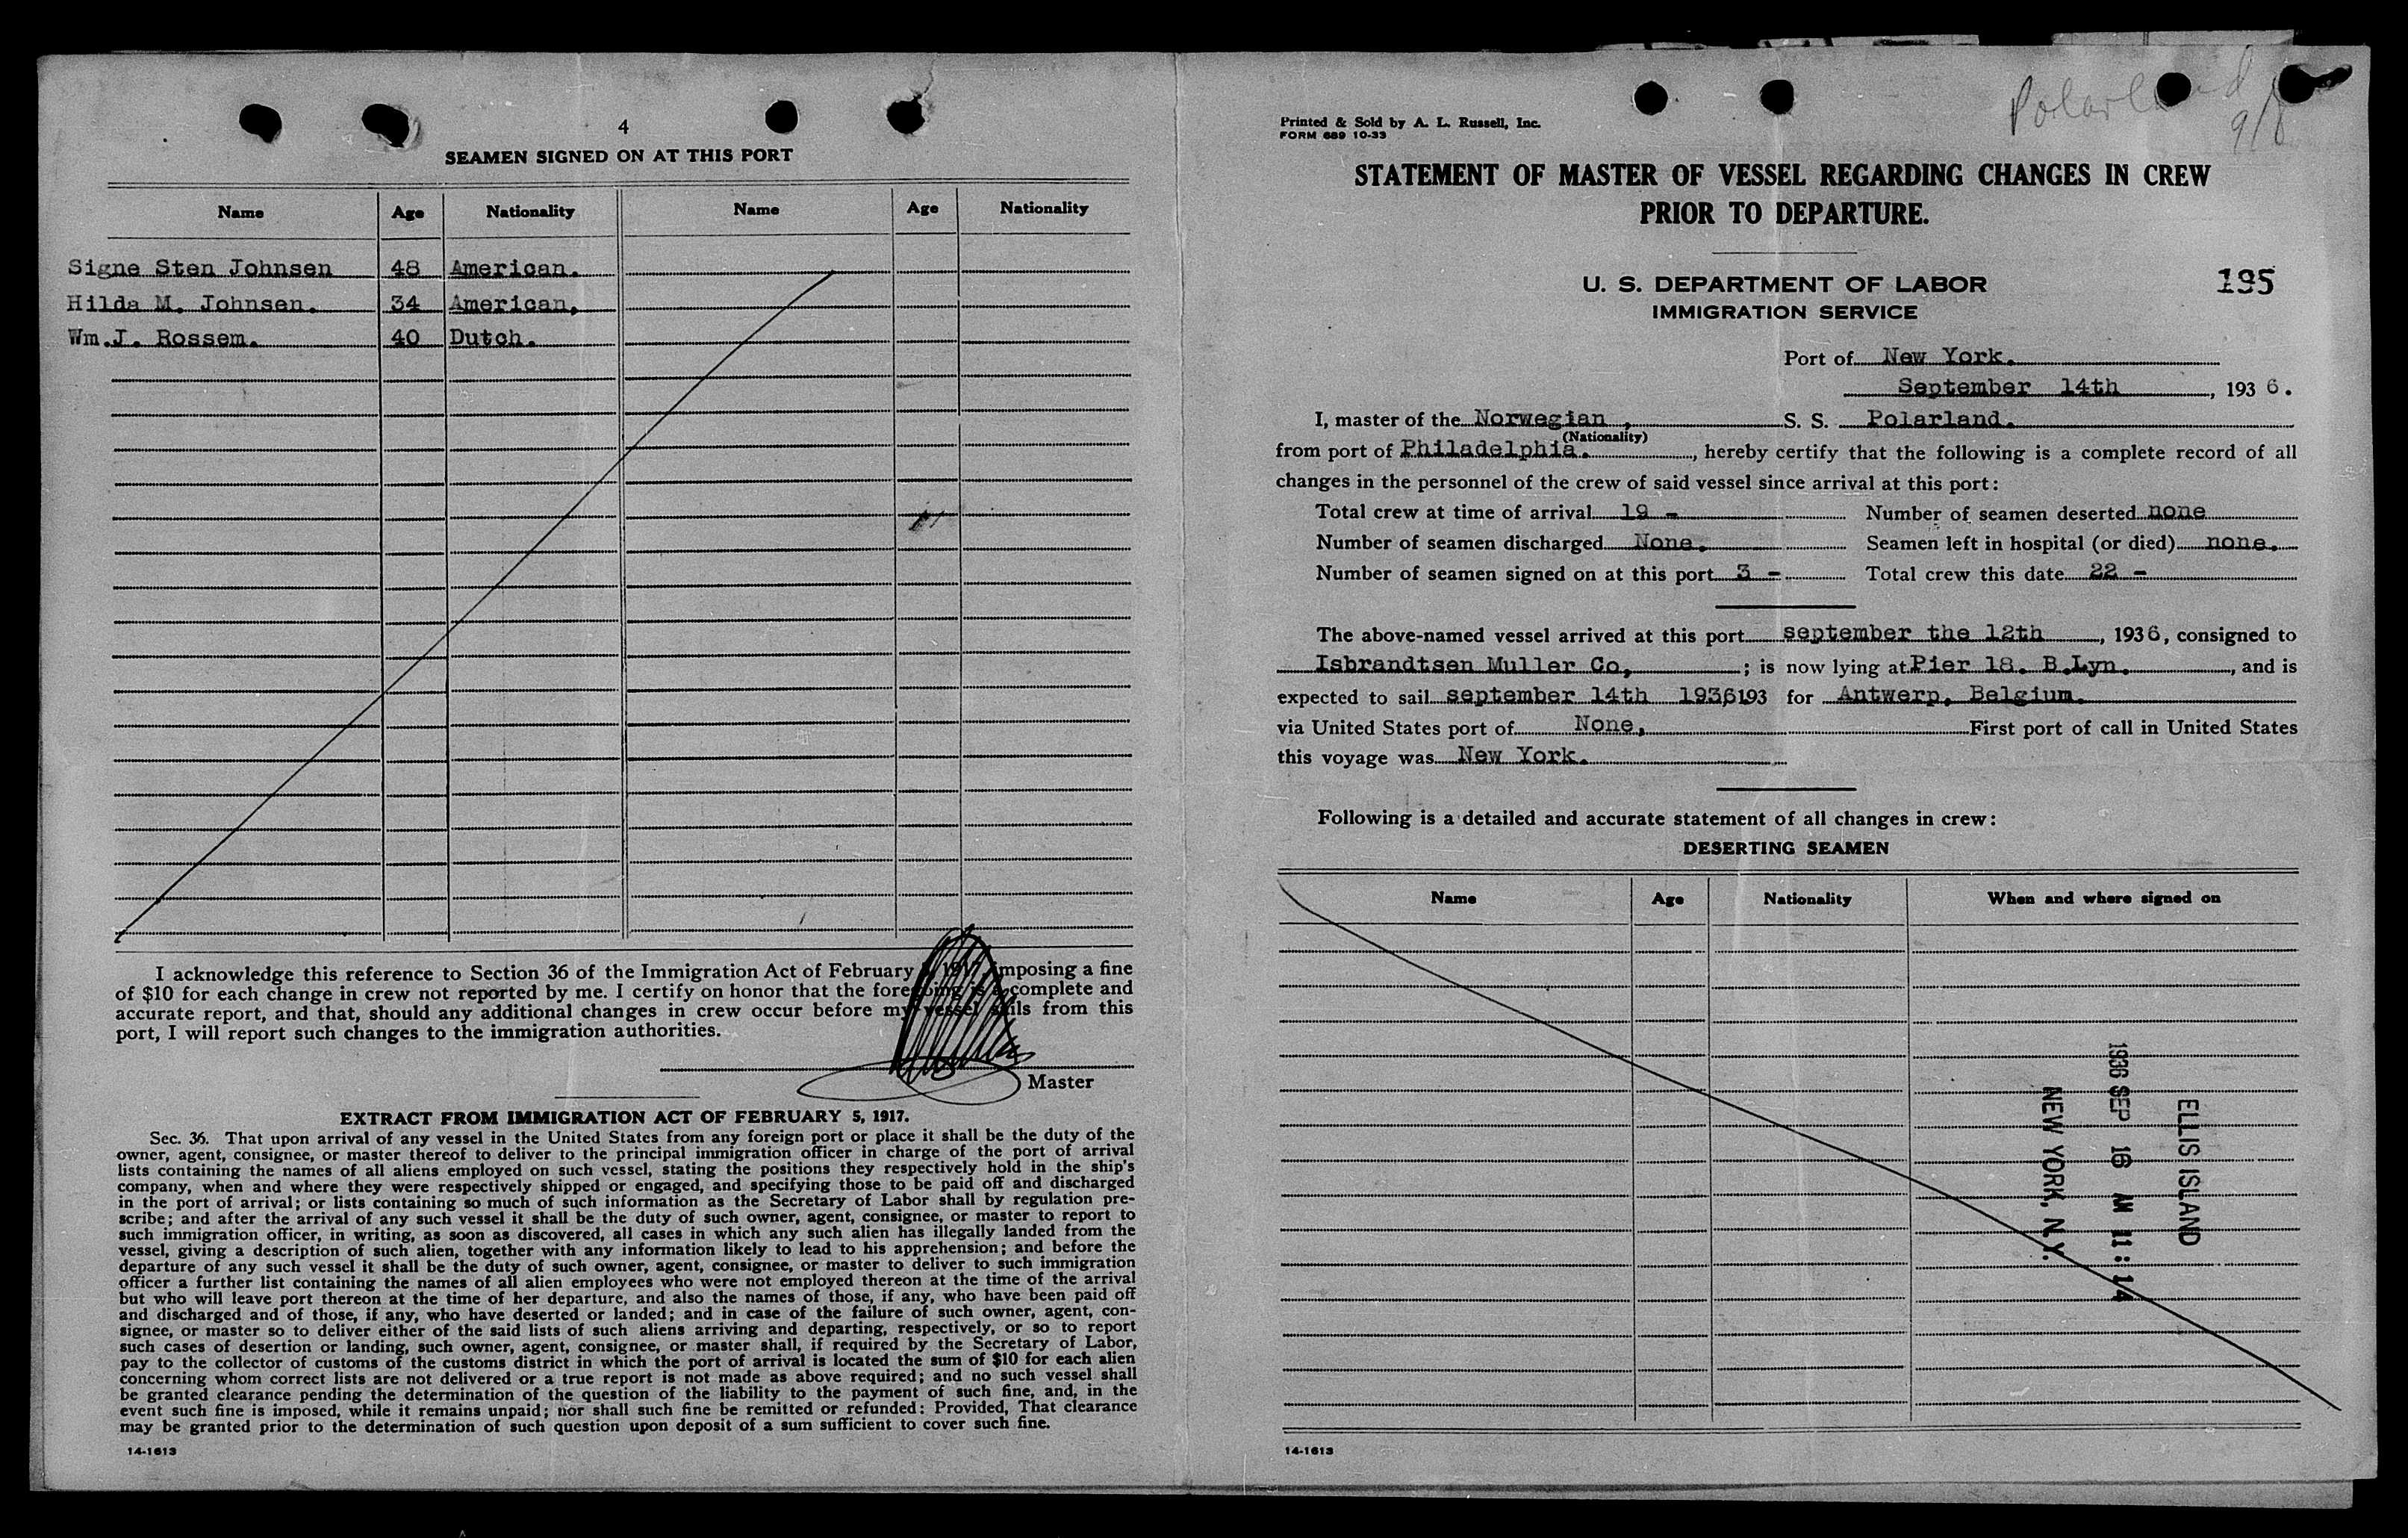 4
SEAMEN SIGNED ON AT THIS PORT
Name Age Nationality Name Age Nationality
Signe Sten Johnsen 48 American.
Hilda M. Johnsen. 34 American,
Wm.J. Rossem. 40 Dutch.
I acknowledge this reference to Section 36 of the Immigration Act of February 5, 1917, imposing a fine
of $10 for each change in crew not reported by me. I certify on honor that the foregoing is a complete and
accurate report, and that, should any additional changes in crew occur before my vessel sails from this
port, I will report such changes to the immigration authorities.
Master
EXTRACT FROM IMMIGRATION ACT OF FEBRUARY 5, 1917.
Sec. 36. That upon arrival of any vessel in the United States from any foreign port or place it shall be the duty of the
owner, agent, consignee, or master thereof to deliver to the principal immigration officer in charge of the port of arrival
lists containing the names of all aliens employed on such vessel, stating the positions they respectively hold in the ship's
company, when and where they were respectively shipped or engaged, and specifying those to be paid off and discharged
in the port of arrival; or lists containing so much of such information as the Secretary of Labor shall by regulation pre-
scribe; and after the arrival of any such vessel it shall be the duty of such owner, agent, consignee, or master to report to
such immigration officer, in writing, as soon as discovered, all cases in which any such alien has illegally landed from the
vessel, giving a description of such alien, together with any information likely to lead to his apprehension; and before the
departure of any such vessel it shall be the duty of such owner, agent, consignee, or master to deliver to such immigration
officer a further list containing the names of all alien employees who were not employed thereon at the time of the arrival
but who will leave port thereon at the time of her departure, and also the names of those, if any, who have been paid off
and discharged and of those, if any, who have deserted or landed; and in case of the failure of such owner, agent, con-
signee, or master so to deliver either of the said lists of such aliens arriving and departing, respectively, or so to report
such cases of desertion or landing, such owner, agent, consignee, or master shall, if required by the Secretary of Labor,
pay to the collector of customs of the customs district in which the port of arrival is located the sum of $10 for each alien
concerning whom correct lists are not delivered or a true report is not made as above required; and no such vessel shall
be granted clearance pending the determination of the question of the liability to the payment of such fine, and, in the
event such fine is imposed, while it remains unpaid; nor shall such fine be remitted or refunded: Provided, That clearance
may be granted prior to the determination of such question upon deposit of a sum sufficient to cover such fine.
14-1613
Polarland
Printed & Sold by A. L. Russell, Inc.
FORM 689 10-33
STATEMENT OF MASTER OF VESSEL REGARDING CHANGES IN CREW
PRIOR TO DEPARTURE.
U. S. DEPARTMENT OF LABOR
IMMIGRATION SERVICE
195
Port of New York.
September 14th , 193 6.
I, master of the Norwegian , S. S. Polarland.
(Nationality)
from port of Philadelphia. , hereby certify that the following is a complete record of all
changes in the personnel of the crew of said vessel since arrival at this port:
Total crew at time of arrival 19 - Number of seamen deserted none
Number of seamen discharged None. Seamen left in hospital (or died) none.
Number of seamen signed on at this port 3 - Total crew this date 22 -
The above-named vessel arrived at this port september the 12th , 1936, consigned to
Isbrandtsen Muller Co, ; is now lying at Pier 18. B.Lyn. , and is
expected to sail september 14th 1936, 193 for Antwerp, Belgium.
via United States port of None, First port of call in United States
this voyage was New York.
Following is a detailed and accurate statement of all changes in crew:
DESERTING SEAMEN
Name Age Nationality When and where signed on
ELLIS ISLAND
1936 SEP 16 AM 11:14
NEW YORK, N.Y.
14-1613